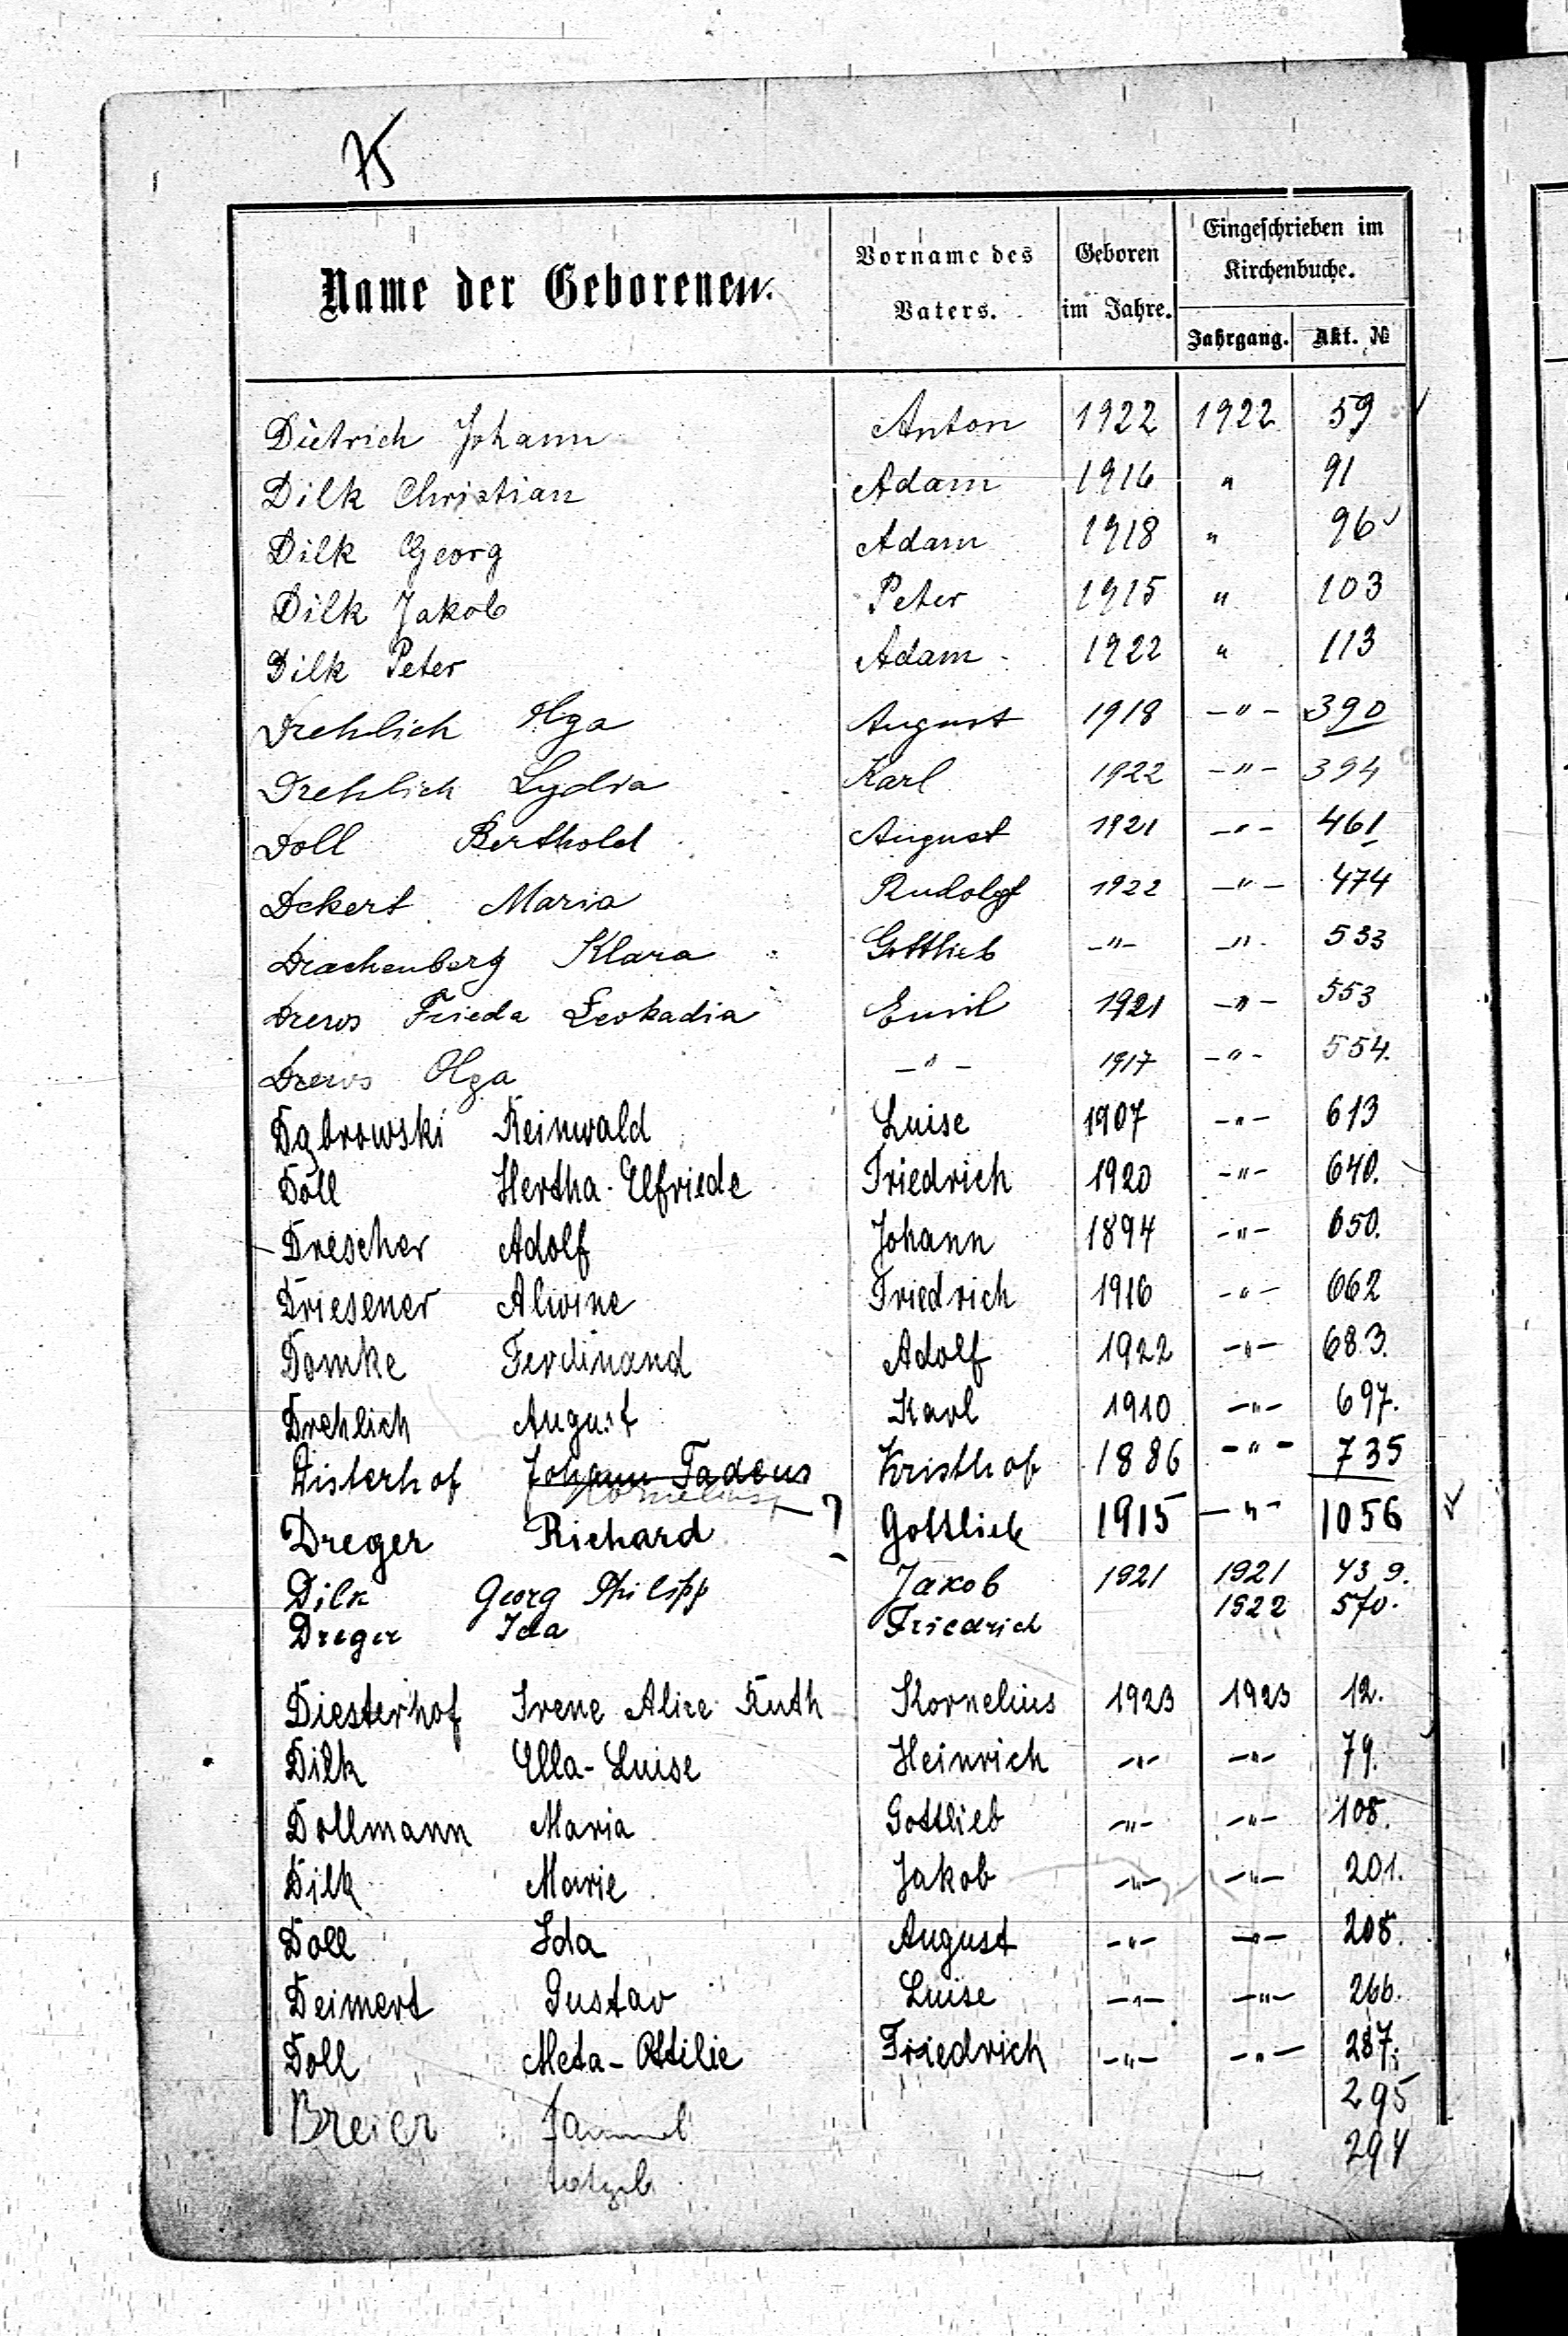 75
Name der Geborenen. Vorname des Vaters. Geboren im Jahre. Eingeschrieben im Kirchenbuche.
Jahrgang. Akt. №
Dietrich Johann Anton 1922 1922 59
Dilk Christian Adam 1916 " 91
Dilk Georg Adam 1918 " 96
Dilk Jakob Peter 1915 " 103
Dilk Peter Adam 1922 " 113
Drehlich Olga August 1918 -"- 390
Drehlich Lydia Karl 1922 -"- 394
Doll Berthold August 1921 -"- 461
Dekert Maria Rudolf 1922 -"- 474
Drachenberg Klara Gottlieb -"- -"- 533
Drews Frieda Leokadia Emil 1921 -"- 553
Drews Olga -"- 1917 -"- 554.
Dąbrowski Reinwald Luise 1907 -"- 613
Doll Hertha-Elfriede Friedrich 1920 -"- 640.
Drescher Adolf Johann 1894 -"- 650.
Driesener Alwine Friedrich 1916 -"- 662
Domke Ferdinand Adolf 1922 -"- 683.
Drehlich August Karl 1910 -"- 697.
Disterhof Johann Tadeus Kristhof 1886 -"- 735
Kornelius ?
Dreger Richard Gottlieb 1915 -"- 1056
Dilk Georg Philipp Jakob 1921 1921 439.
Dreger Ida Friedrich 1922 570.
Diesterhof Irene Alice Ruth Kornelius 1923 1923 12.
Dilk Ella-Luise Heinrich -"- -"- 79.
Dollmann Maria Gottlieb -"- -"- 108.
Dilk Marie Jakob -"- -"- 201.
Doll Ida August -"- -"- 208.
Deimert Gustav Luise -"- -"- 266.
Doll Meta-Ottilie Friedrich -"- -"- 287.
295
Breier 294